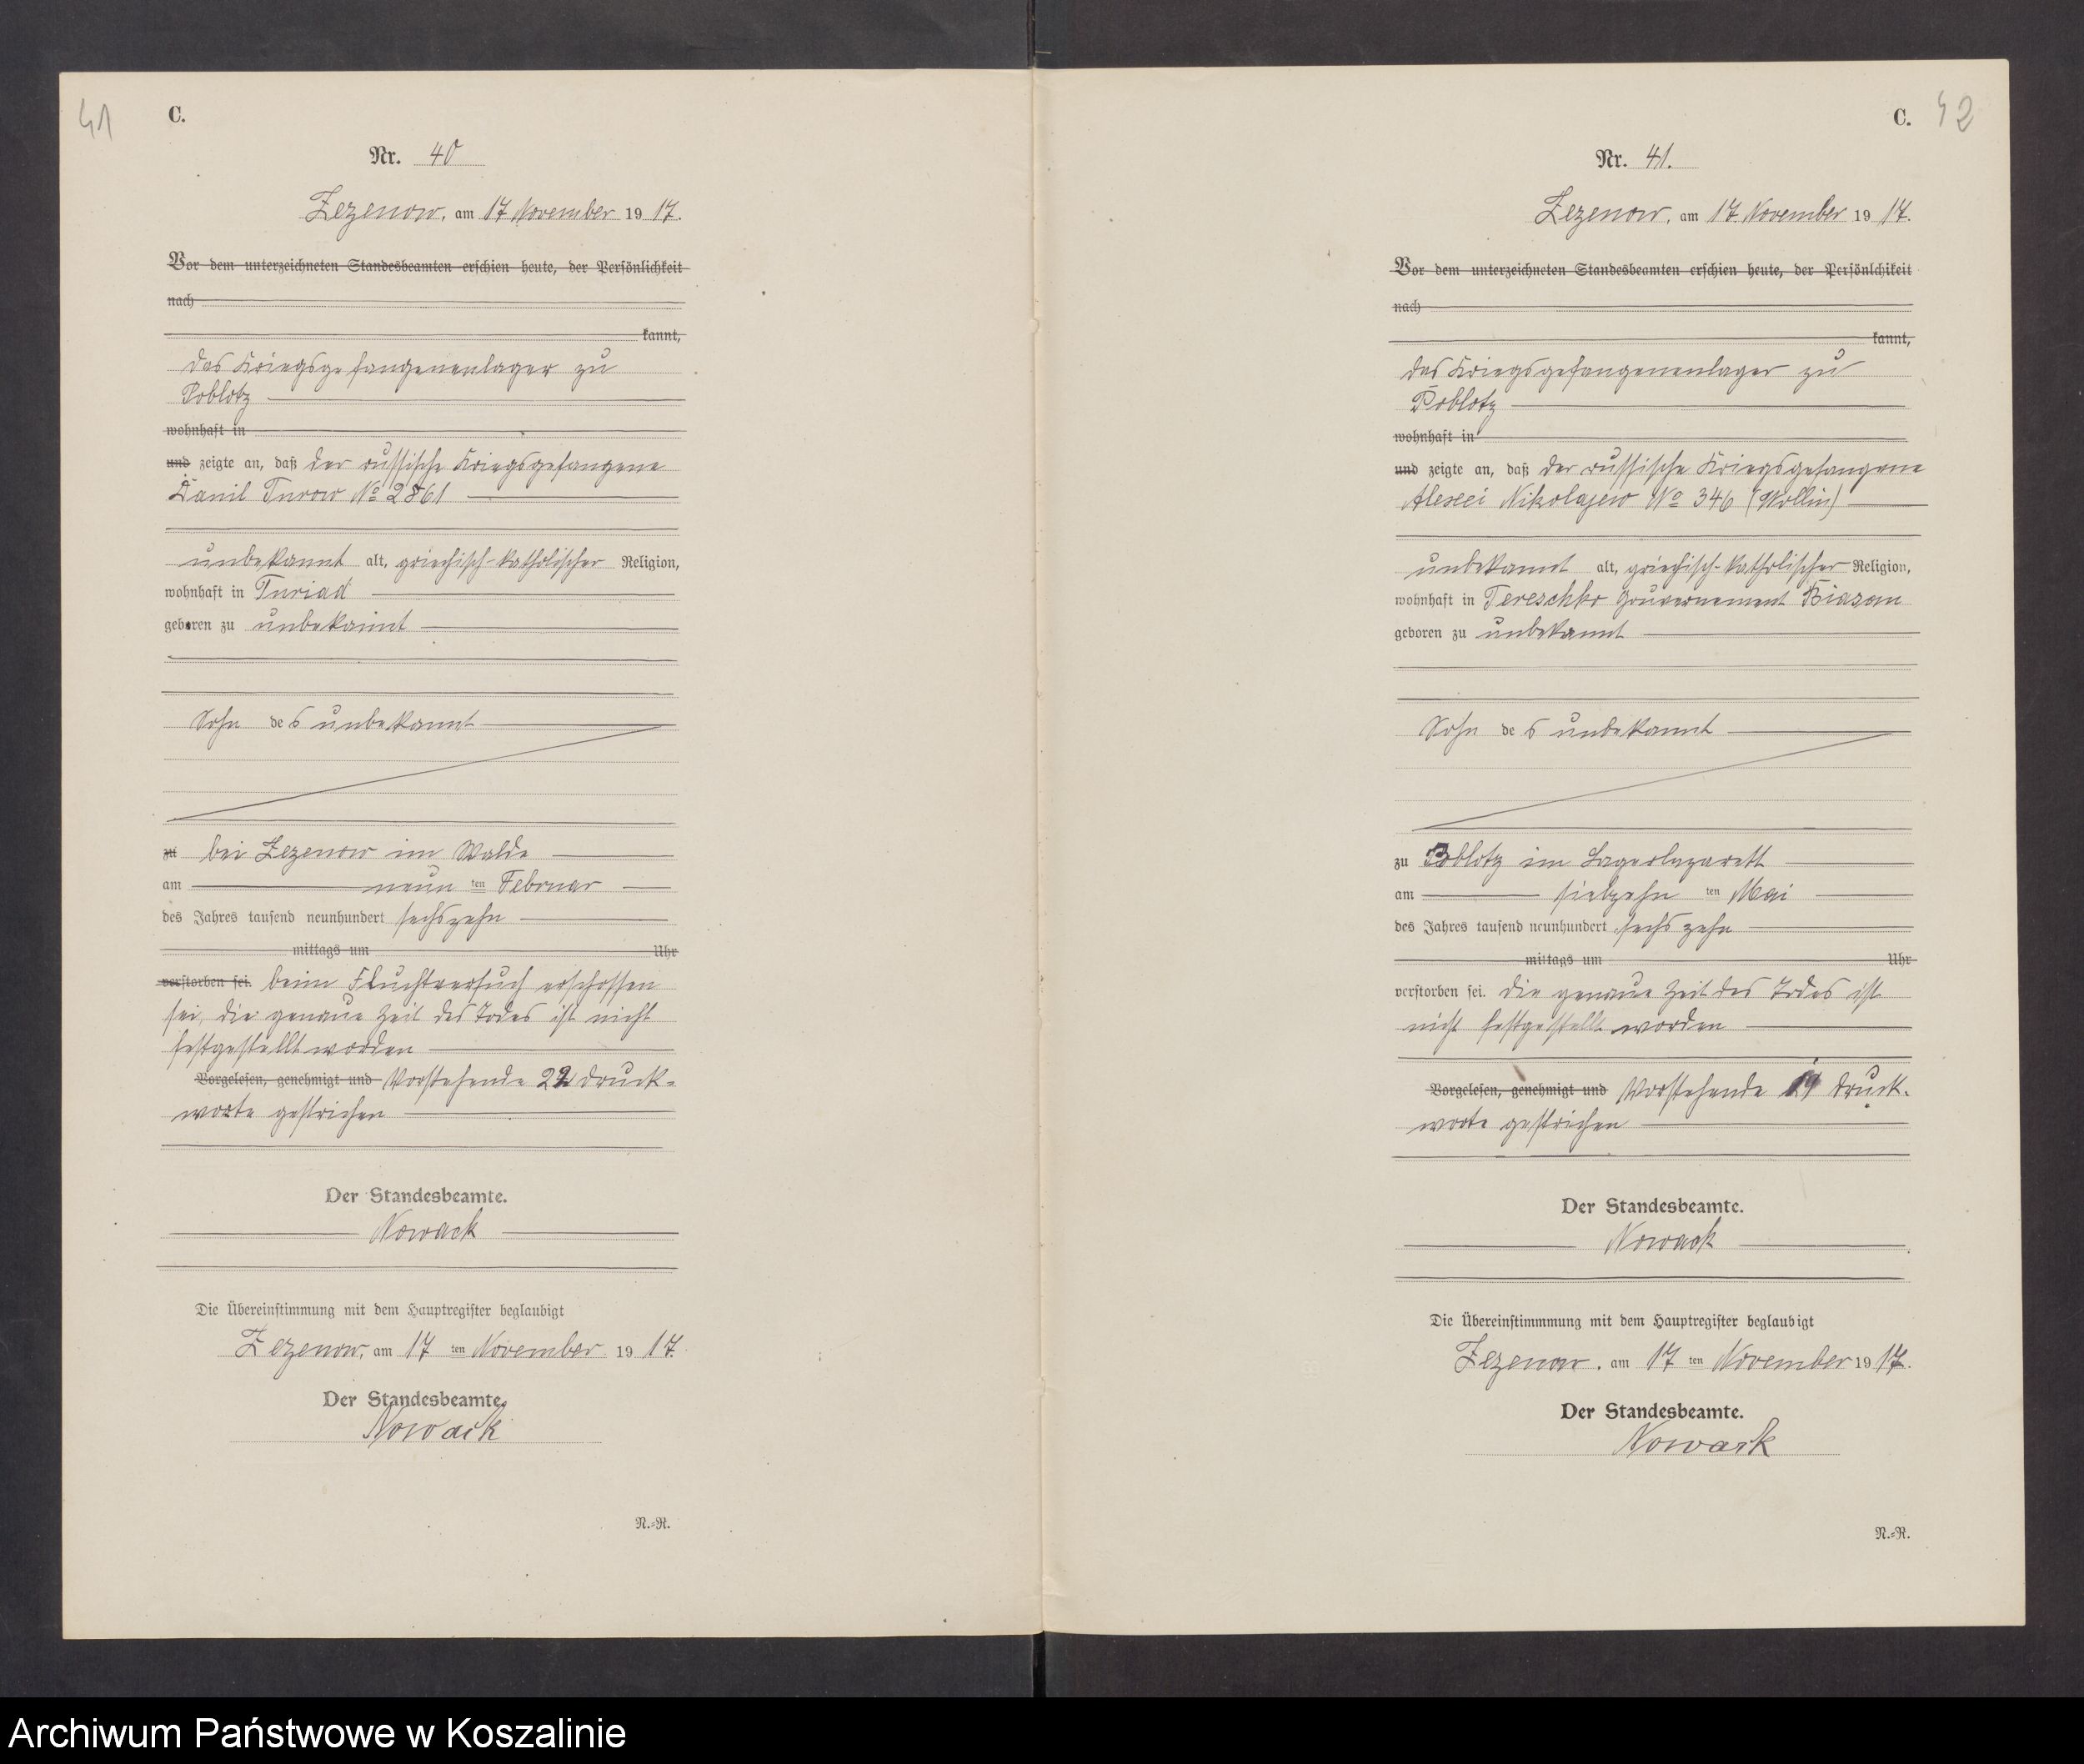 41
C.
Nr. 40
Zezenow, am 17 November 1917.
Vor dem unterzeichneten Standesbeamten erschien heute, der Persönlichkeit
nach
kannt,
das Kriegsgefangenenlager zu
Poblotz
wohnhaft in
und zeigte an, daß der russische Kriegsgefangene
Danil Turow No 2861
unbekannt alt, griechisch-katholischer Religion,
wohnhaft in Turiad
geboren zu unbekannt
Sohn des unbekannt
zu bei Zezenow im Walde
am neun ten Februar
des Jahres tausend neunhundert sechszehn
mittags um Uhr
verstorben sei. beim Fluchtversuch erschossen
sei, die genaue Zeit des Todes ist nicht
festgestellt worden
Vorgelesen, genehmigt und Vorstehende 22 Druck-
worte gestrichen
Der Standesbeamte.
Nowack
Die Übereinstimmung mit dem Hauptregister beglaubigt
Zezenow, am 17 ten November 1917.
Der Standesbeamte.
Nowack
N.=R.
C. 42
Nr. 41.
Zezenow, am 17 November 1917.
Vor dem unterzeichneten Standesbeamten erschien heute, der Persönlchikeit
nach
kannt,
das Kriegsgefangenenlager zu
Poblotz
wohnhaft in
und zeigte an, daß der russische Kriegsgefangene
Alexei Nikolajew No 346 (Wollin)
unbekannt alt, griechisch-katholischer Religion,
wohnhaft in Tereschko Gouvernement Riasan
geboren zu unbekannt
Sohn des unbekannt
zu Poblotz im Lagerlazarett
am siebzehn ten Mai
des Jahres tausend neunhundert sechszehn
mittags um Uhr
verstorben sei. die genaue Zeit des Todes ist
nicht festgestellt worden
Vorgelesen, genehmigt und Vorstehende 19 Druck-
worte gestrichen
Der Standesbeamte.
Nowack
Die Übereinstimmmung mit dem Hauptregister beglaubigt
Zezenow, am 17 ten November 1917.
Der Standesbeamte.
Nowack
N.=R.
Archiwum Państwowe w Koszalinie